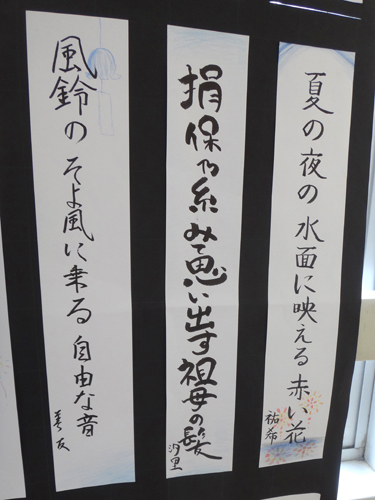 夏の夜の水面に映える赤い花
祐希
揖保乃糸みて思い出す祖母の髪
汐里
風鈴のそよ風に乗る自由な音